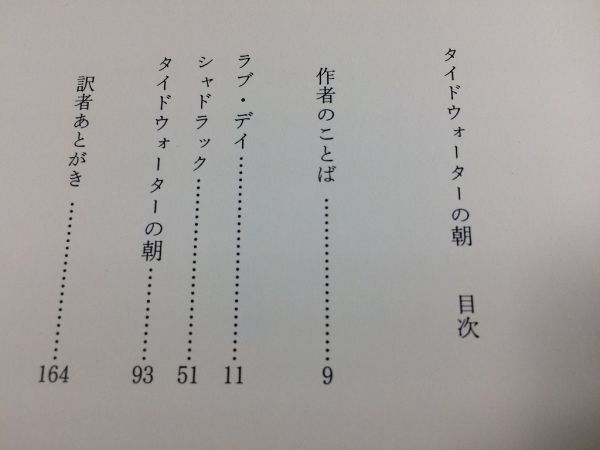 タイドウォーターの朝　目次
作者のことば……………………9
ラブ・デイ……………………11
シャドラック……………………51
タイドウォーターの朝……………93
訳者あとがき……………………164